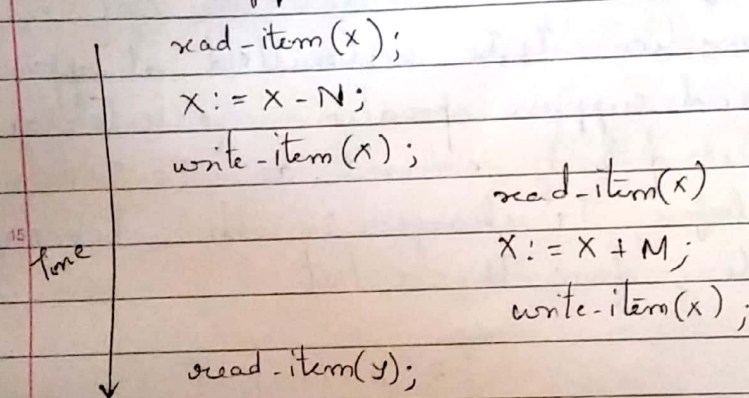 read-item(x);
X:= X-N;
write-item(x);
read-item(x)
15
Time
X:= X + M;
write-item(x);
read-item(y);